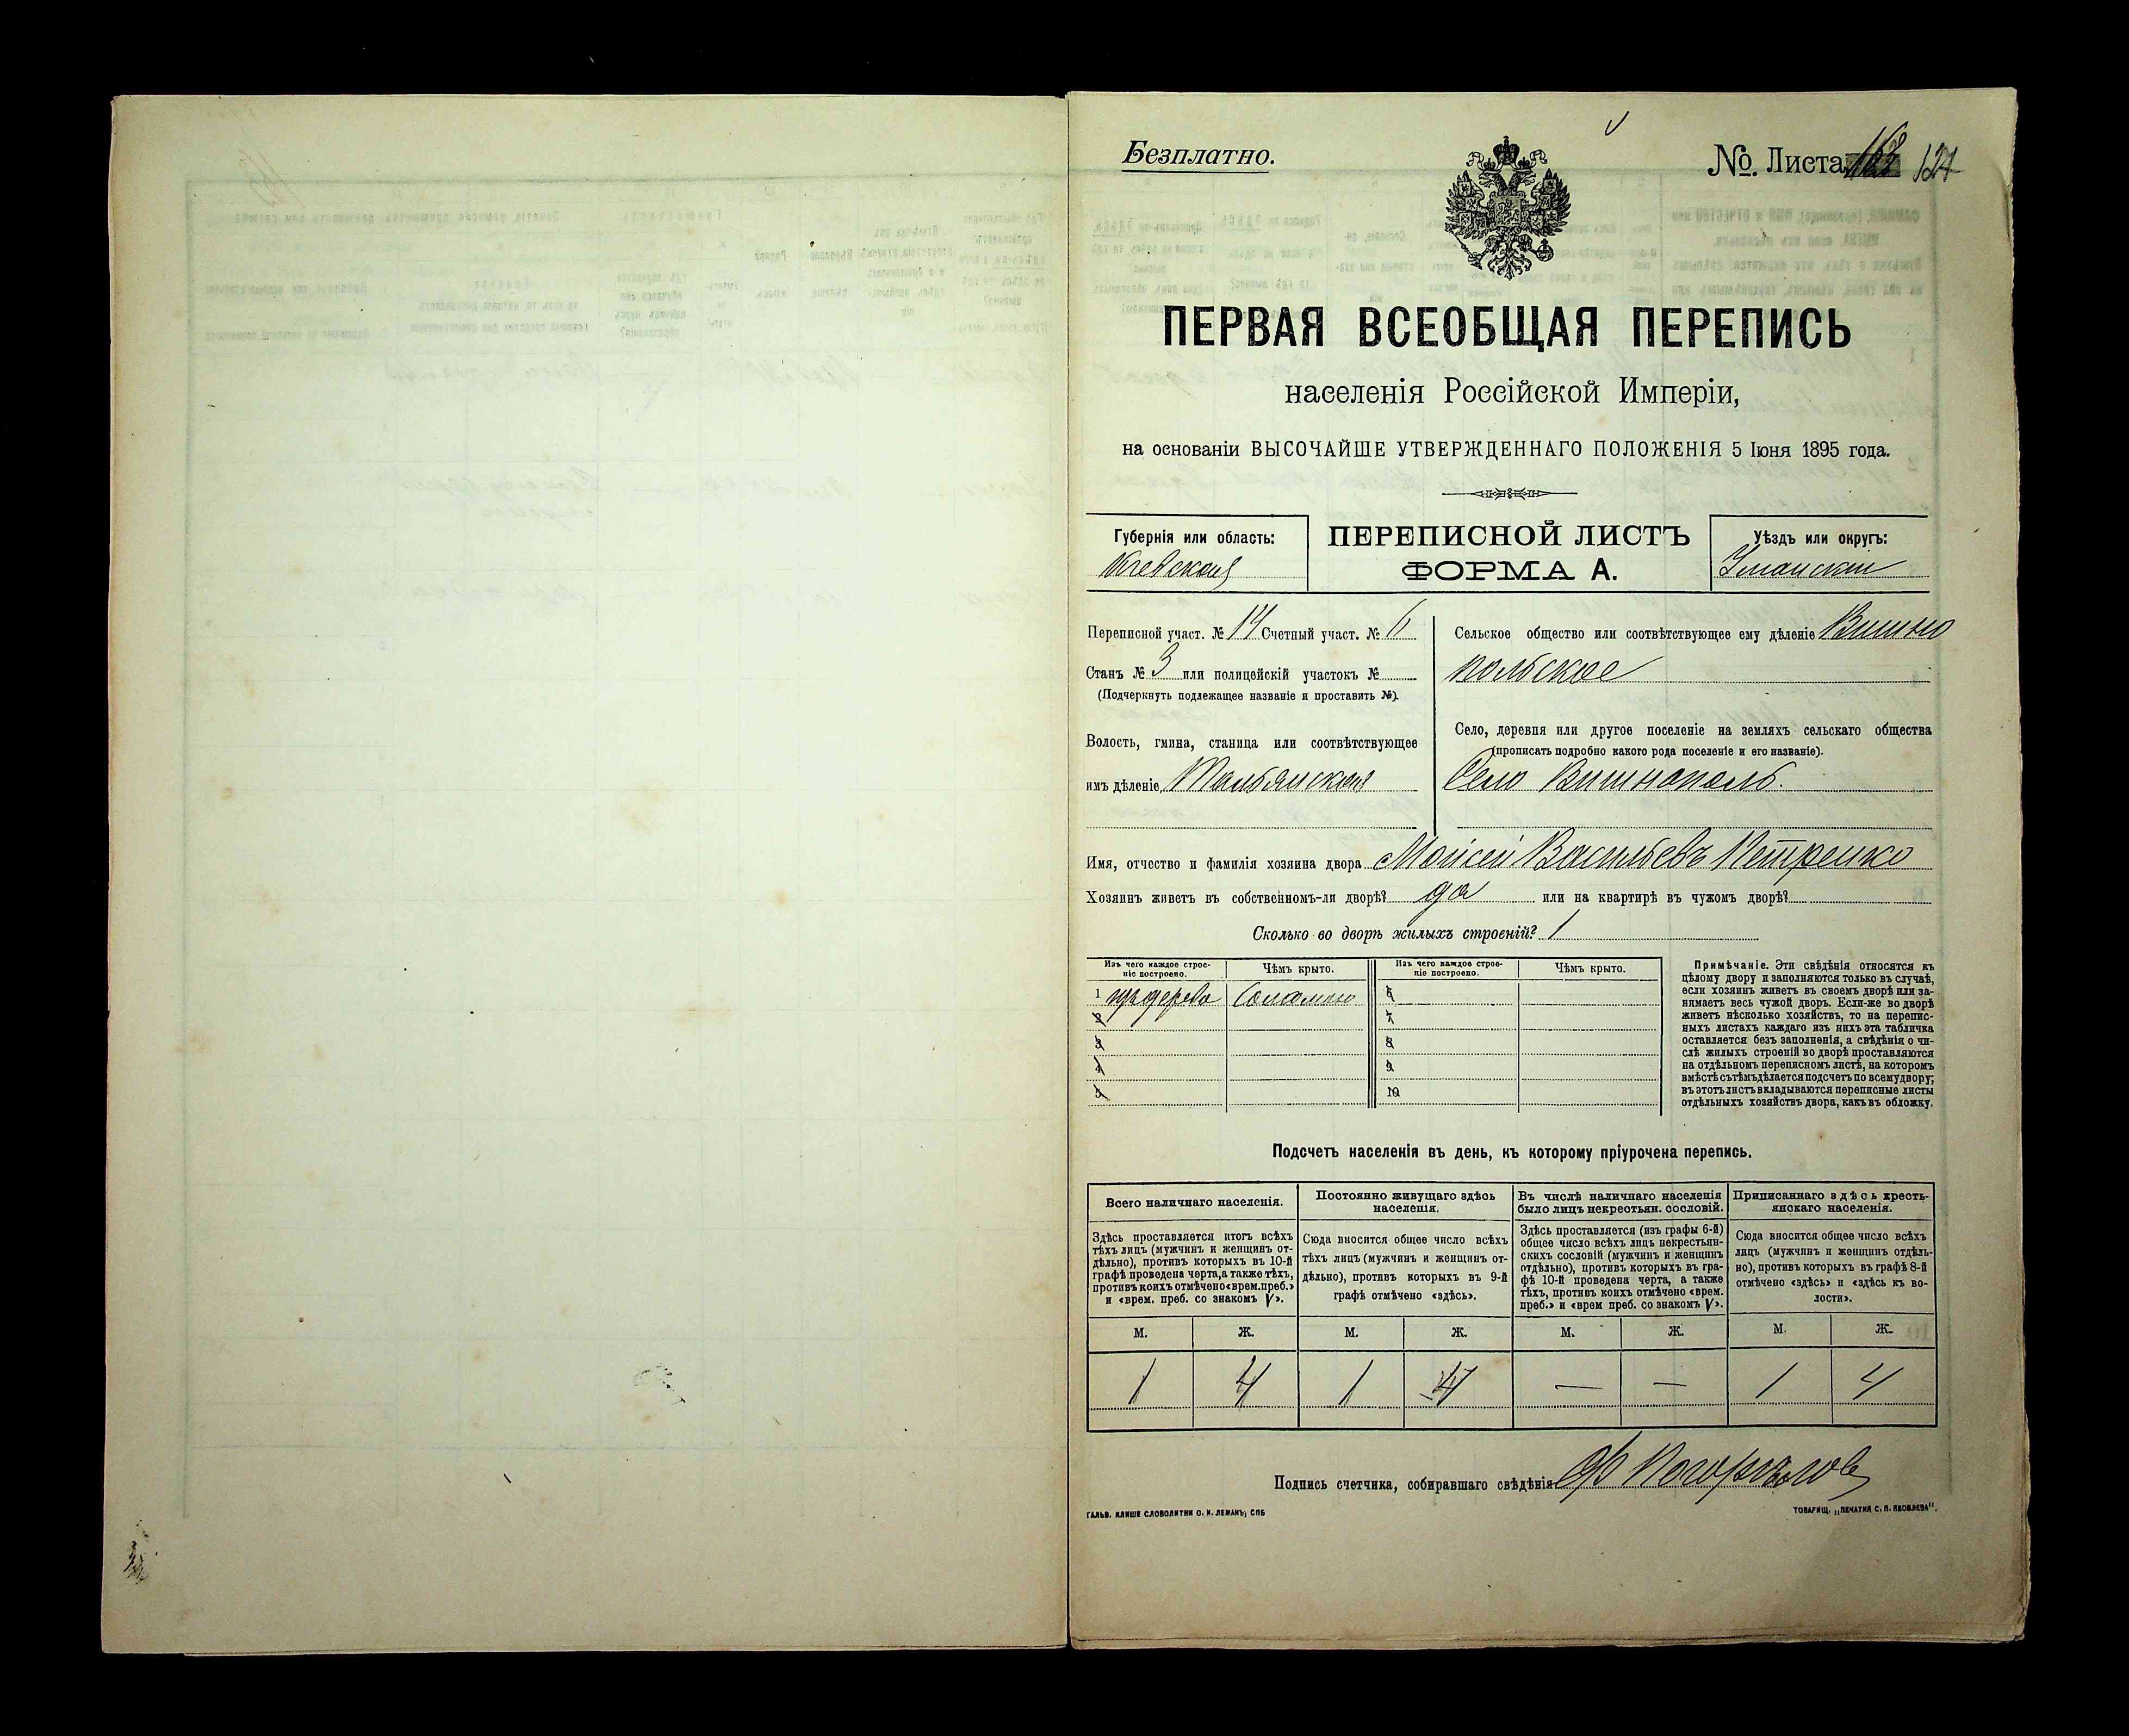 Безплатно.
№. Листа 121
ПЕРВАЯ ВСЕОБЩАЯ ПЕРЕПИСЬ
населенія Россійской Имперіи,
на основаніи ВЫСОЧАЙШЕ УТВЕРЖДЕННАГО ПОЛОЖЕНІЯ 5 Іюня 1895 года.
Губернія или область:
Кіевская
ПЕРЕПИСНОЙ ЛИСТЪ
ФОРМА А.
Уѣздъ или округъ:
Уманскій
Переписной участ. № 14 Счетный участ. № 6
Станъ № 3 или полицейскій участокъ №
(Подчеркнуть подлежащее названіе и проставить №).
Волость, гмина, станица или соотвѣтствующее
имъ дѣленіе Тальянская
Сельское общество или соотвѣтствующее ему дѣленіе Вишно
польское
Село, деревня или другое поселеніе на земляхъ сельскаго общества
(прописать подробно какого рода поселеніе и его названіе).
Село Вишнополь.
Имя, отчество и фамилія хозяина двора Моисей Васильевъ Петренко
Хозяинъ живетъ въ собственномъ-ли дворѣ? да или на квартирѣ въ чужомъ дворѣ?
Сколько во дворѣ жилыхъ строеній? 1
Изъ чего каждое строе-
ніе построено.
Чѣмъ крыто.
Изъ чего каждое строе-
ніе построено.
Чѣмъ крыто.
1 изъ дерева Соломою 6
2 7
3 8
4 9
5 10
Примѣчаніе. Эти свѣдѣнія относятся къ
цѣлому двору и заполняются только въ случаѣ,
если хозяинъ живетъ въ своемъ дворѣ или за-
нимаетъ весь чужой дворъ. Если-же во дворѣ
живетъ нѣсколько хозяйствъ, то на перепис-
ныхъ листахъ каждаго изъ нихъ эта табличка
оставляется безъ заполненія, а свѣдѣнія о чи-
слѣ жилыхъ строеній во дворѣ проставляются
на отдѣльномъ переписномъ листѣ, на которомъ
вмѣстѣ съ тѣмъ дѣлается подсчетъ по всему двору;
въ этотъ листъ вкладываются переписные листы
отдѣльныхъ хозяйствъ двора, какъ въ обложку.
Подсчетъ населенія въ день, къ которому пріурочена перепись.
Всего наличнаго населенія.
Здѣсь проставляется итогъ всѣхъ
тѣхъ лицъ (мужчинъ и женщинъ от-
дѣльно), противъ которыхъ въ 10-й
графѣ проведена черта, а также тѣхъ,
противъ коихъ отмѣчено «врем. преб.»
и «врем. преб. со знакомъ V».
Постоянно живущаго здѣсь
населенія.
Сюда вносится общее число всѣхъ
тѣхъ лицъ (мужчинъ и женщинъ от-
дѣльно), противъ которыхъ въ 9-й
графѣ отмѣчено «здѣсь».
Въ числѣ наличнаго населенія
было лицъ некрестьян. сословій.
Здѣсь проставляется (изъ графы 6-й)
общее число всѣхъ лицъ некрестьян-
скихъ сословій (мужчинъ и женщинъ
отдѣльно), противъ которыхъ въ гра-
фѣ 10-й проведена черта, а также
тѣхъ, противъ коихъ отмѣчено «врем.
преб.» и «врем преб. со знакомъ V».
Приписаннаго здѣсь кресть-
янскаго населенія.
Сюда вносится общее число всѣхъ
лицъ (мужчинъ и женщинъ отдѣль-
но), противъ которыхъ въ графѣ 8-й
отмѣчено «здѣсь» и «здѣсь къ во-
лости».
М. Ж. М. Ж. М. Ж. М. Ж.
1 4 1 4 — — 1 4
Подпись счетчика, собиравшаго свѣдѣнія
ГАЛЬВ. КЛИШЕ СЛОВОЛИТНИ О. И. ЛЕМАНЪ, СПБ
ТОВАРИЩ. „ПЕЧАТНЯ С. П. ЯКОВЛЕВА".